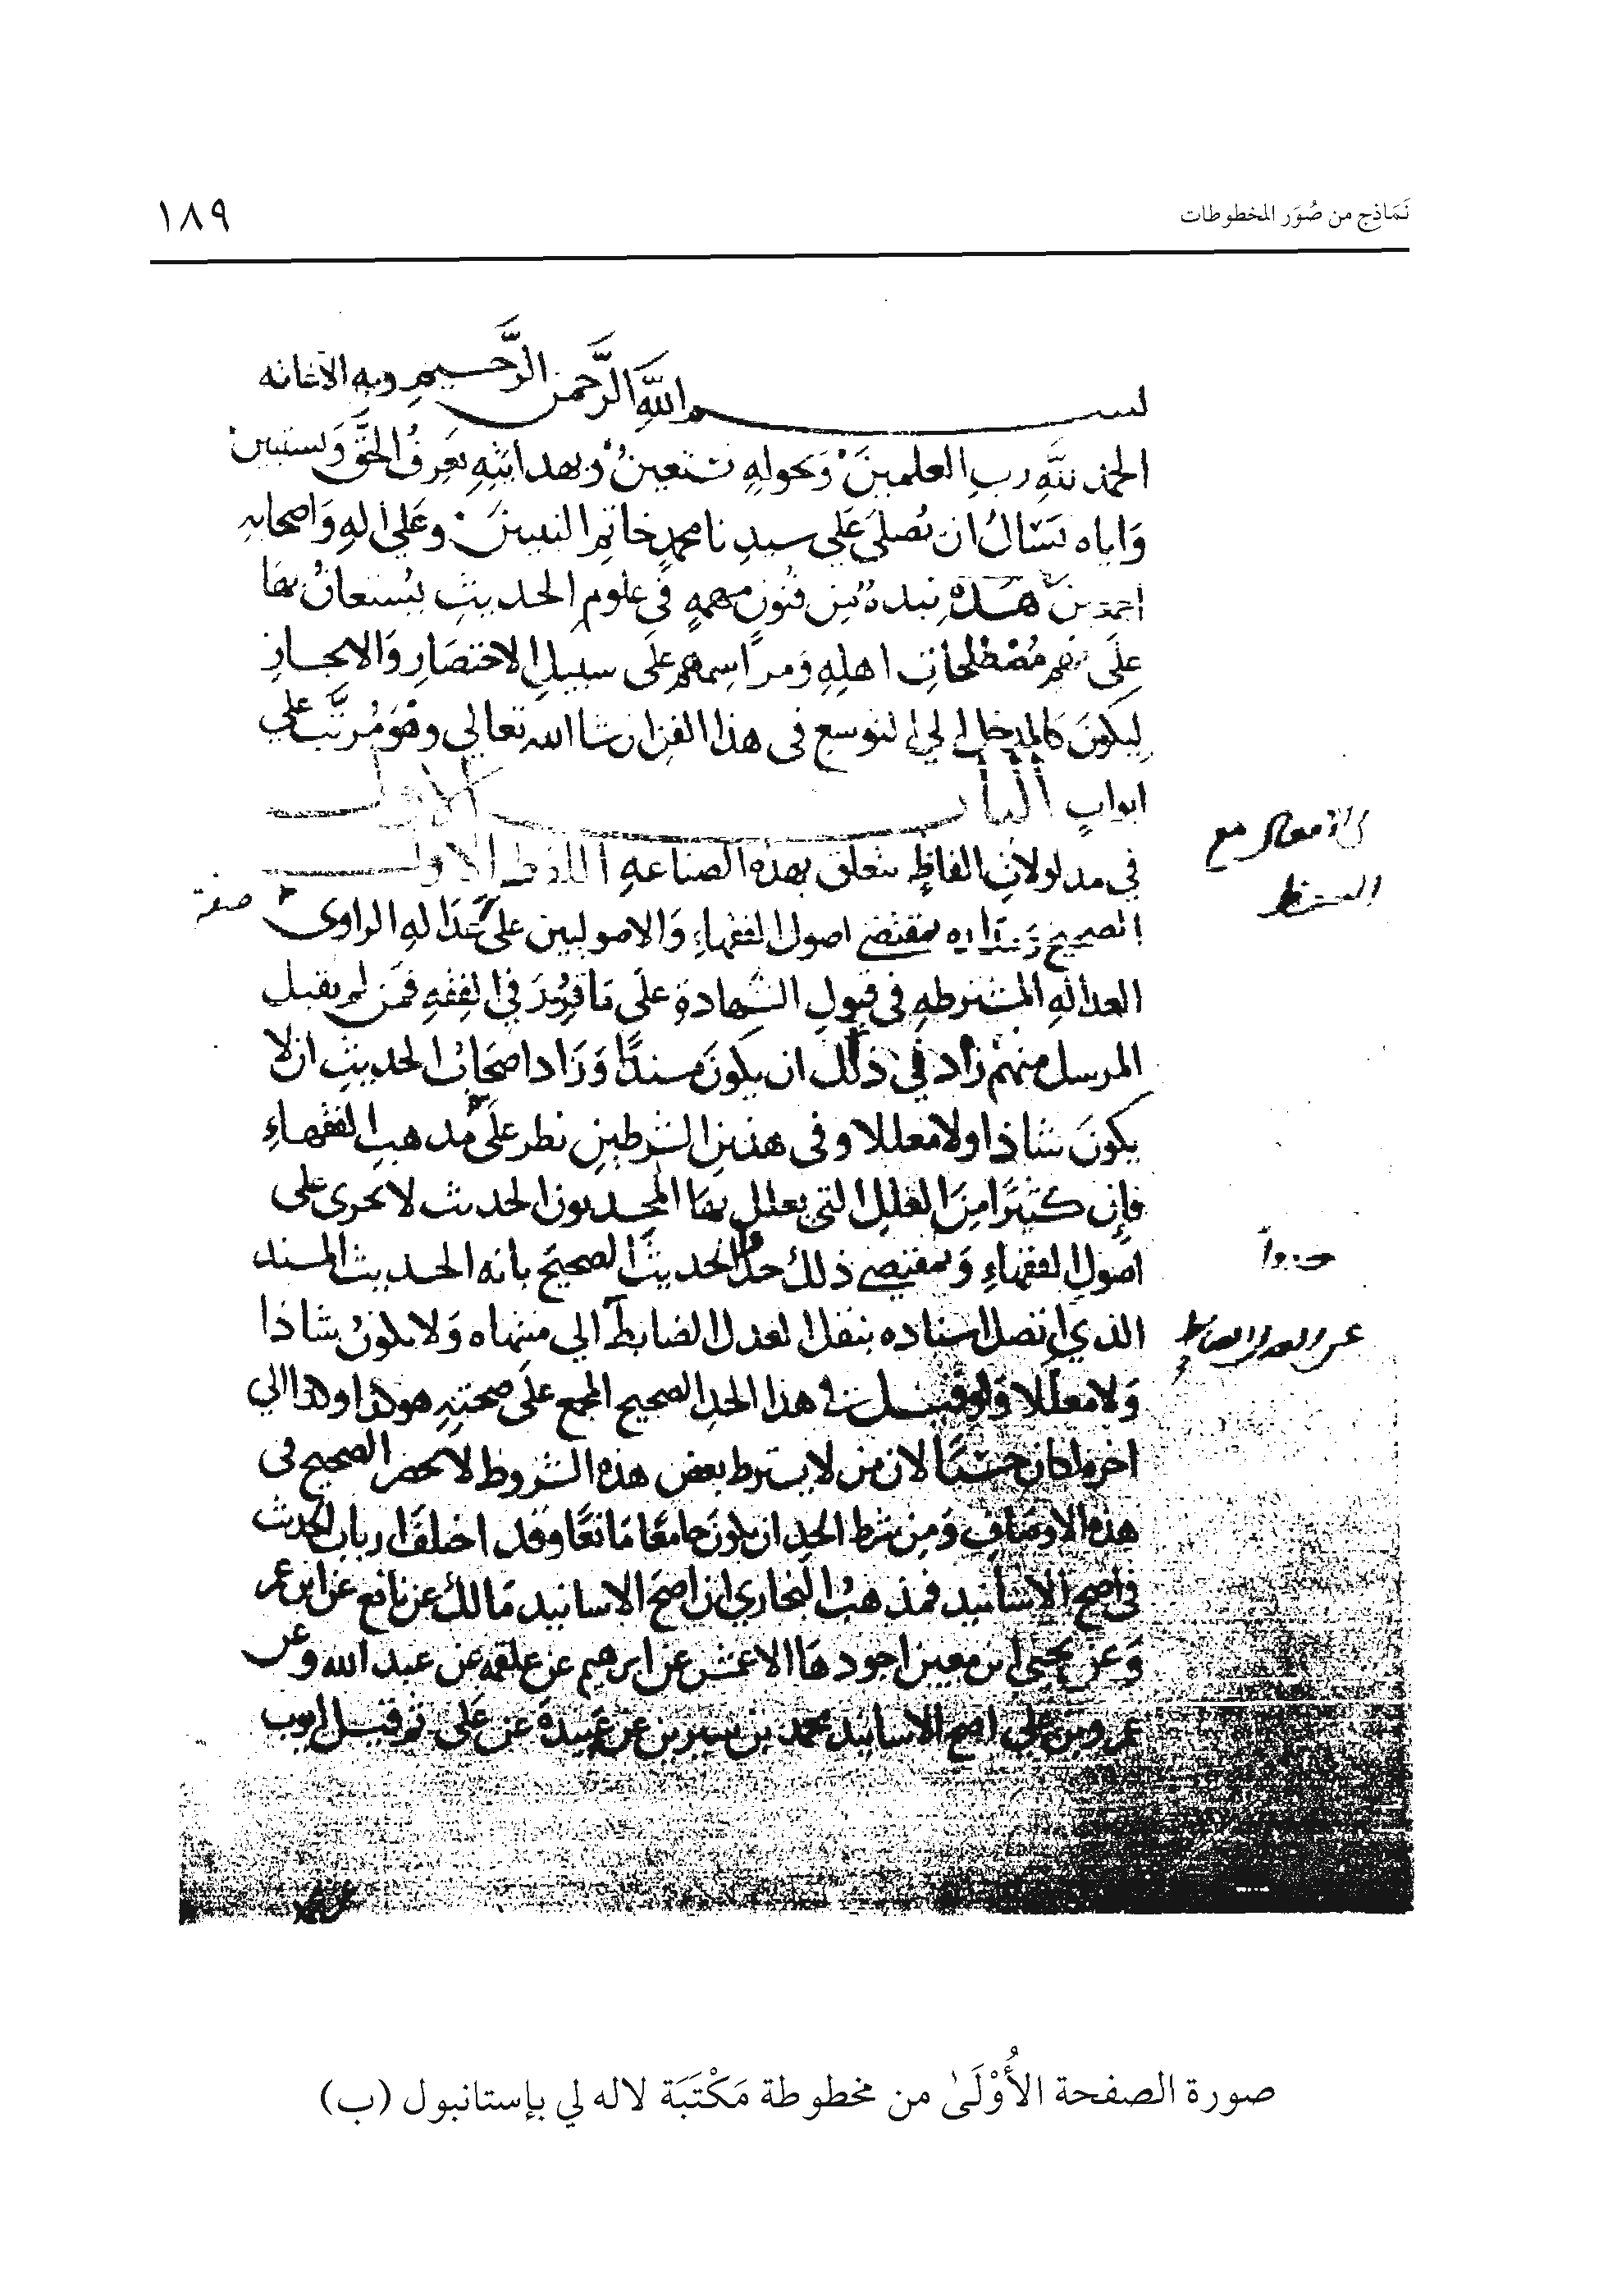 نَمَاذِج من صُوَر المخطوطات
١٨٩
بسم الله الرَّحمن الرَّحيم وبه الاعانه
الحمد لله رب العلمين وَبحوله نستعين وبهدايته نعرف الحق وَنستبين
وَاياه نسَال ان يُصلي عَلى سيدنا محمد خاتم النبيين وعَلى اله وَاصحابه
اجمعين هذه نبذة من فنون مهمه في علوم الحديث يُستعان بها
عَلى فهم مُصْطلحات اهله وَمراسمهم عَلى سبيل الاختصَار وَالايجاز
ليكونَ كالمدخل الي التوسع في هذا الفن ان شا الله تعالي وهوَ مُرتَّب علي
ابواب الباب الاول
في مدلولات الفاظ تتعلق بهذه الصناعه اللفظ الاول
الصحيح وَمداره بمقتضى اصول الفقهاء وَالاصوليين على عَدَاله الراوى
العداله المشترطه في قبول الشهادة عَلى مَا قرر في الفقه فمَن لم يقبل
المرسل منهم زاد في ذلك ان يكونَ مسندًا وَزَاد اصحَاب الحديث ان لا
يكونَ شاذا ولا معللا وفي هذين الشرطين نظر عَلى مذهب الفقهاء
فإن كثيرًا منَ العلل التي يعلل بهَا المحدثون الحديث لا تجرى على
اصول الفقهاء وَبمقتضى ذلك حُدَّ الحديث الصحيح بانه الحديث المسند
الذي اتصل اسناده بنقل العدل الضابط الي منتهاه وَلا يكونُ شاذا
وَلا معللا وَلو قيل في هذا الحد الصحيح المجمع عَلى صحته هو كذا وكذا الي
اخره لكان حسنًا لان من لا يشترط بعض هذه الشروط لا يحصر الصحيح في
هذه الاوصاف وَمن شرط الحد ان يكونَ جامعًا مَانعًا وقد اختلفَ ارباب الحديث
في اصح الاسانيد فمذهبُ البخاري ان اصحَ الاسانيد مَالك عن نافع عن ابن عمر
وَعن يحيى ابن معين اجودهَا الاعمش عن ابرهيم عن علقمه عن عبد الله وعن
عمرو بن علي اصح الاسانيد محمد بن سيرين عن عَبيدة عن عَلى وقيل ايوب
صفة
حدوا
عن العدل الضابط
صورة الصفحة الأُوْلَىٰ من مخطوطة مَكْتَبَة لاله لي بإستانبول (ب)